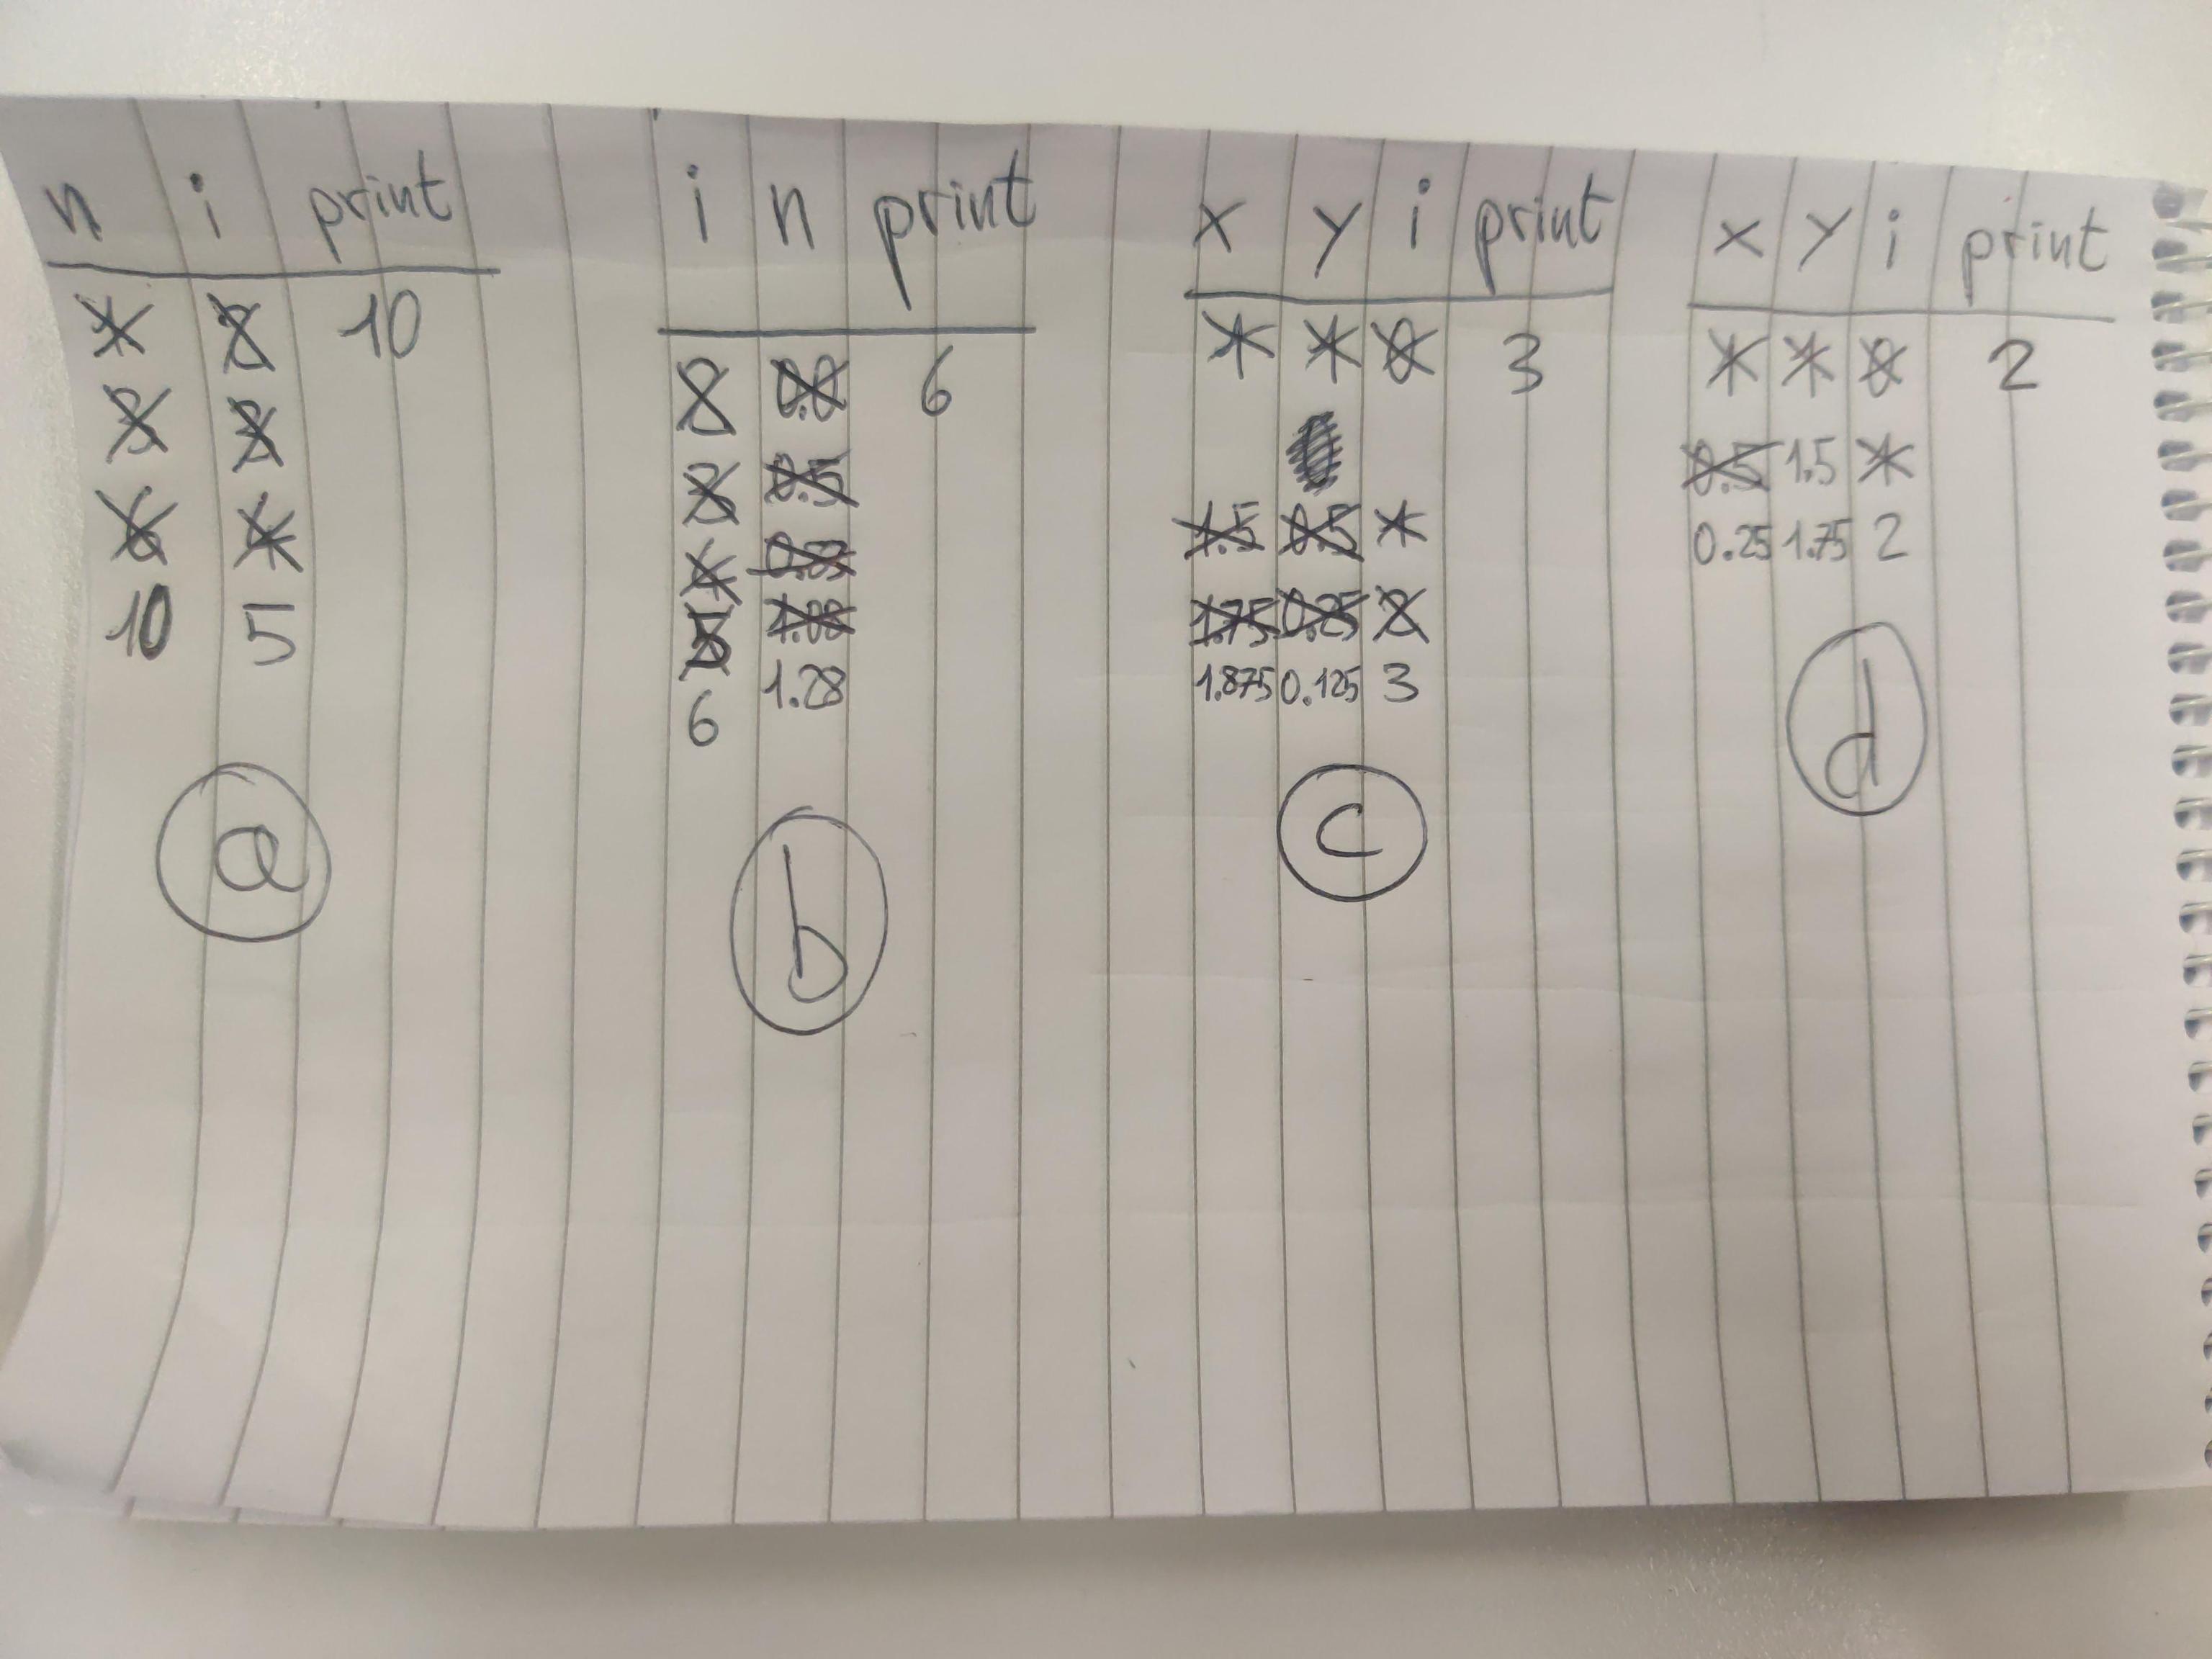 n i print
1 2 10
3 3
6 4
10 5
a
i n print
2 0.0 6
3 0.5
4 0.83
5 1.08
6 1.28
b
x y i print
1 1 0 3
1.5 0.5 1
1.75 0.25 2
1.875 0.125 3
c
x y i print
1 1 0 2
0.5 1.5 1
0.25 1.75 2
d